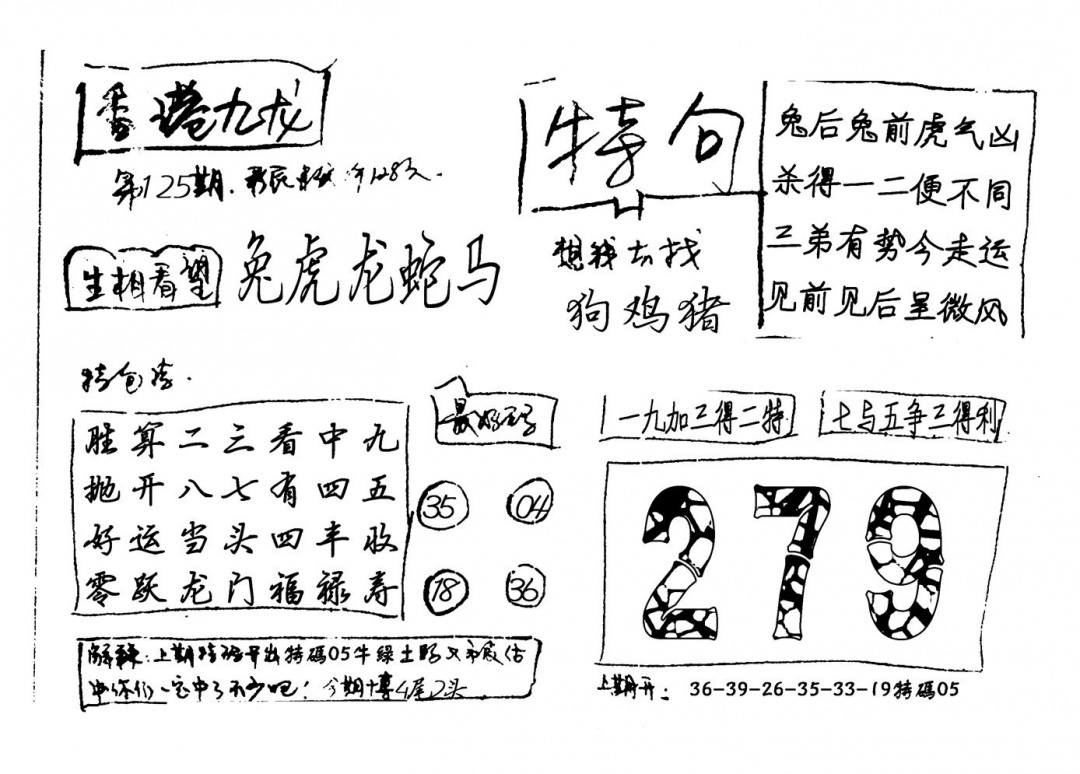 香港九龙
第125期.
生相看望
兔虎龙蛇马
特句
想我去找
狗鸡猪
兔后兔前虎气凶
杀得一二便不同
三弟有势今走运
见前见后呈微风
胜算二三看中九
抛开八七有四五
好运当头四丰收
零跃龙门福禄寿
最好
35 04
18 36
一九加三得二特
七与五争三得利
279
上期 开出特碼05牛绿土
中你们一定中了不少吧! 今期博4尾2头
上期开: 36-39-26-35-33-19特碼05